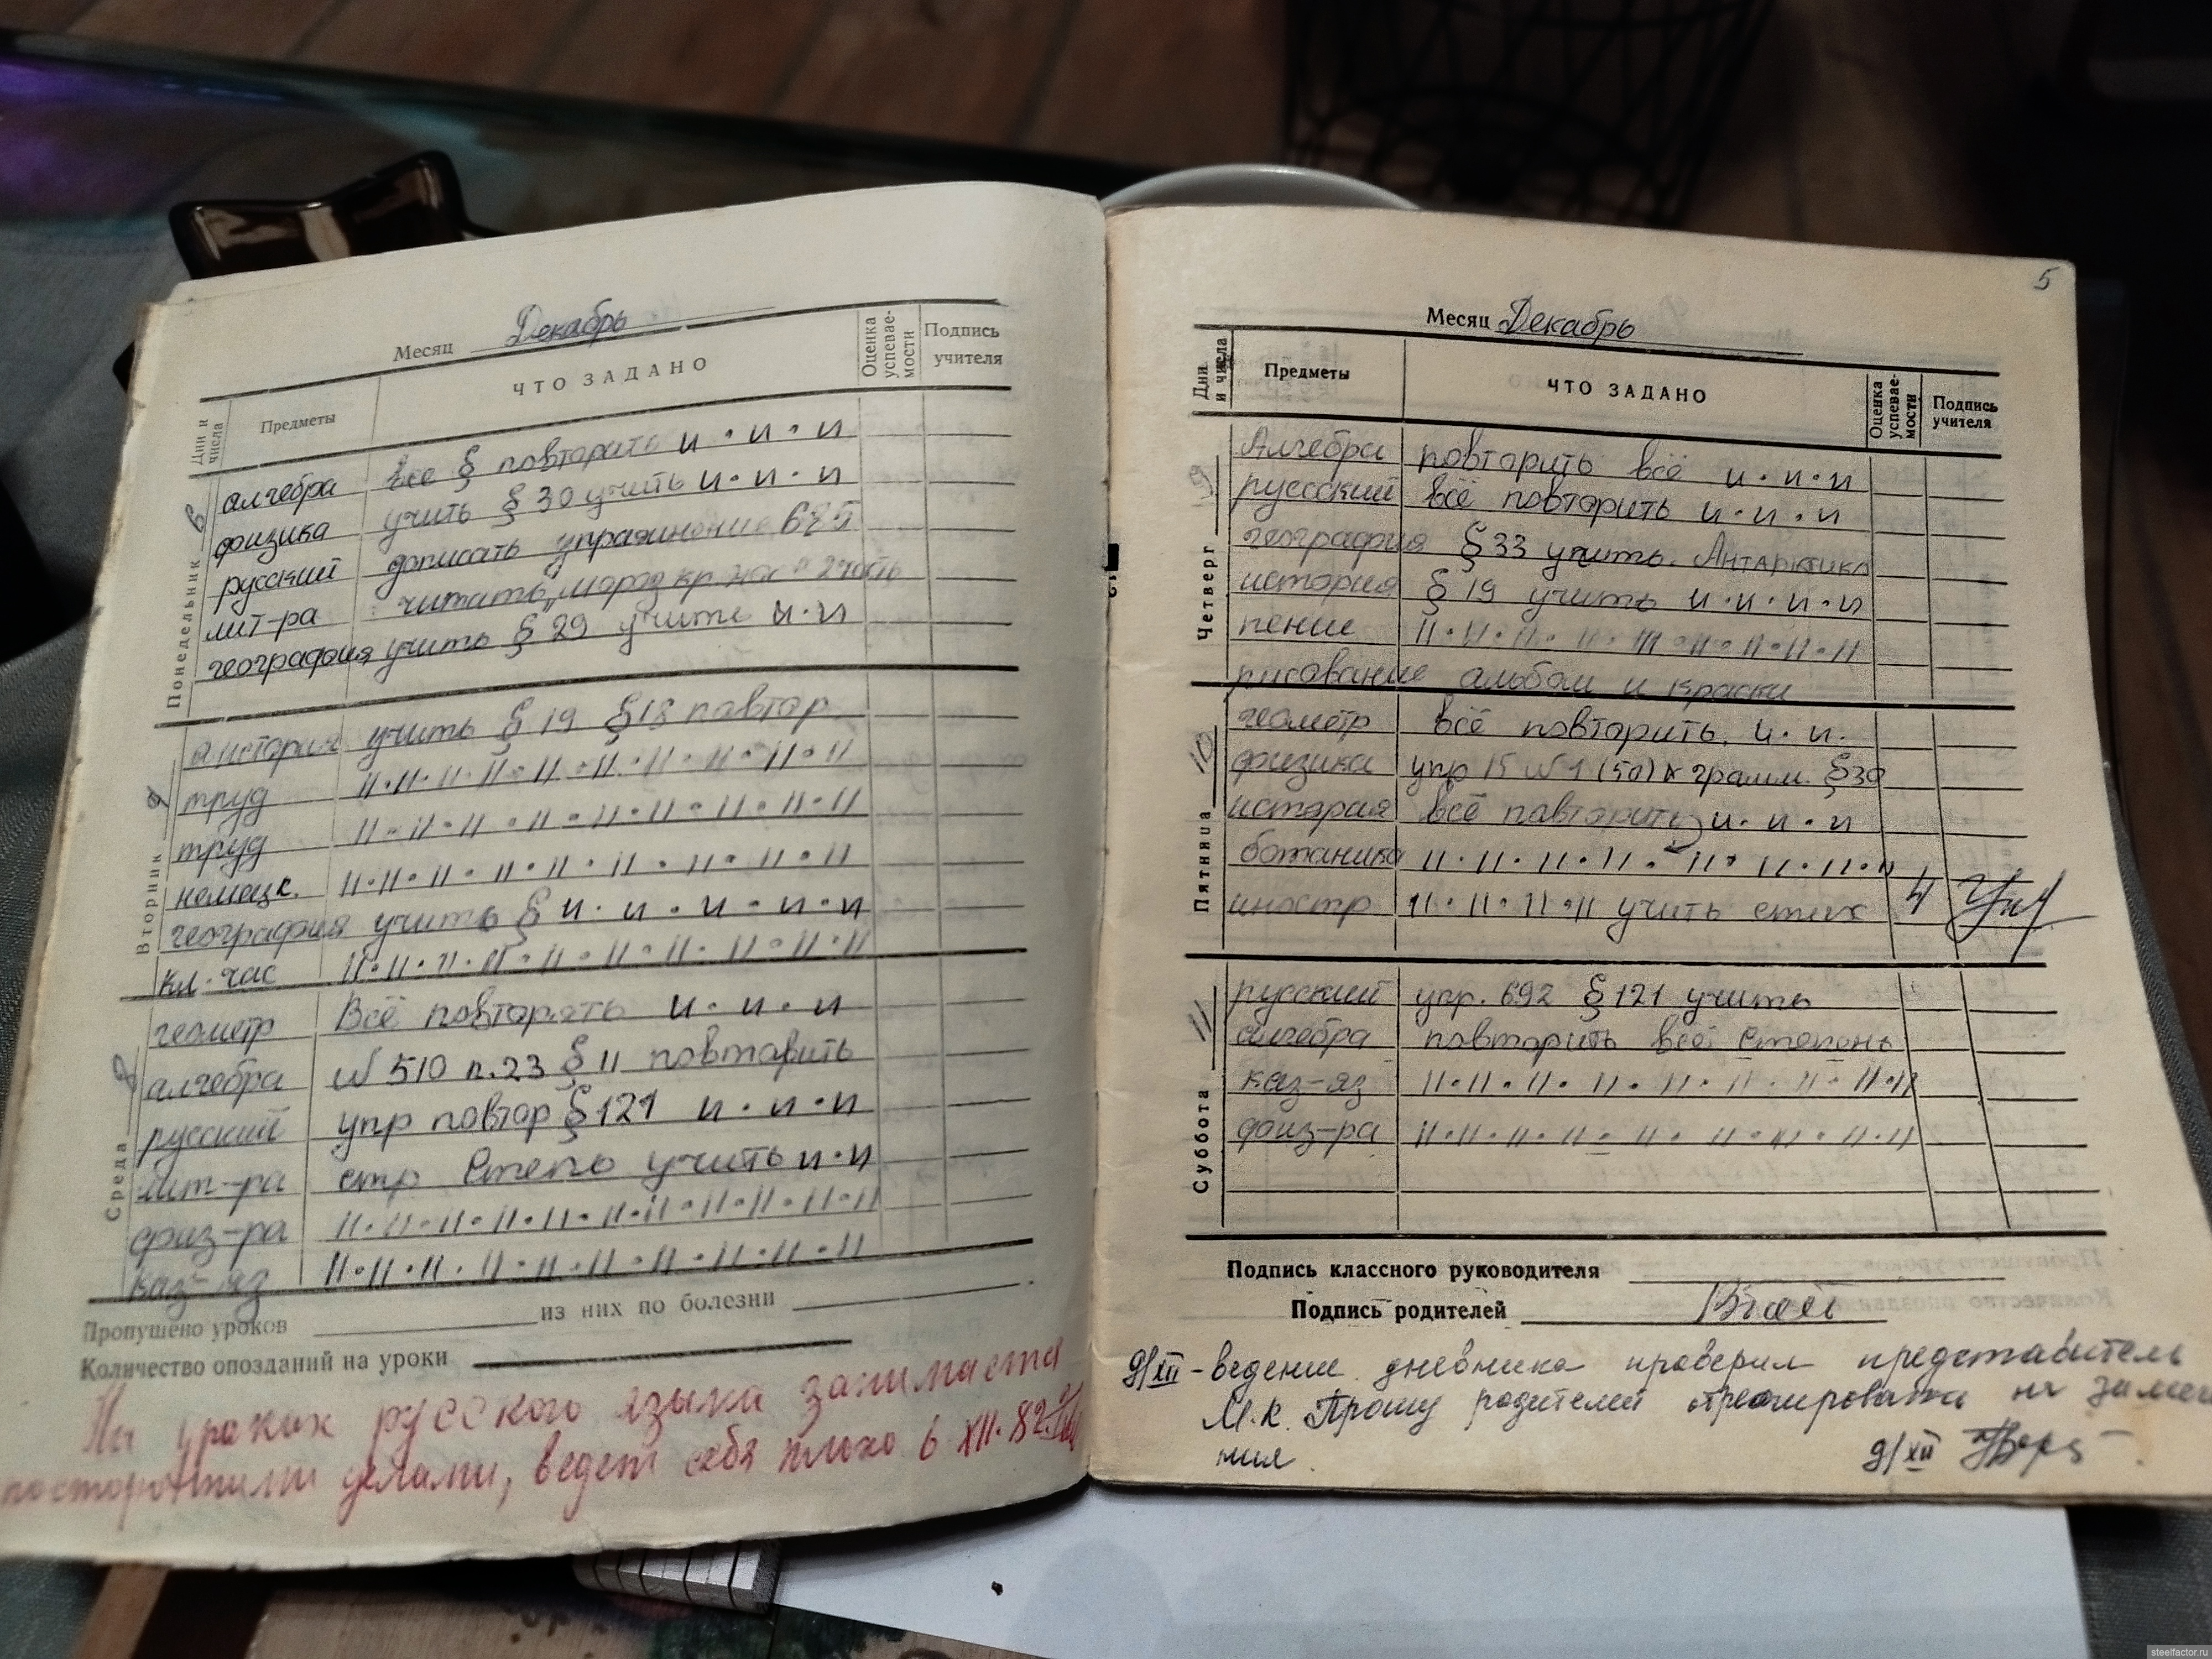 Месяц Декабрь
Дни и числа Предметы ЧТО ЗАДАНО Оценка успевае-мости Подпись учителя
Понедельник 6
алгебра все § повторить и · и · и
физика учить § 30 учить и · и · и
русский дописать упражнение 685
лит-ра читать „мороз кр. нос" 2 часть
география учить § 29 учить и · и
Вторник
история учить § 19 § 18 повтор
труд 11 · 11 · 11 · 11 · 11 · 11 · 11 · 11 · 11 · 11
труд 11 · 11 · 11 · 11 · 11 · 11 · 11 · 11 · 11
немецк. 11 · 11 · 11 · 11 · 11 · 11 · 11 · 11 · 11
география учить § и · и · и · и · и
кл. час 11 · 11 · 11 · 11 · 11 · 11 · 11 · 11 · 11 · 11
Среда
геометр Всё повторить и · и · и
алгебра № 510 п. 23 § 11 повтарить
русский упр повтор § 121 и · и · и
лит-ра стр Степь учить и · и
физ-ра 11 · 11 · 11 · 11 · 11 · 11 · 11 · 11 · 11 · 11 · 11
каз-яз 11 · 11 · 11 · 11 · 11 · 11 · 11 · 11 · 11
Пропушено уроков из них по болезни
Количество опозданий на уроки
На уроках русского языка занимается
посторонними делами, ведет себя плохо 6 XII. 82
5
Месяц Декабрь
Дни и числа Предметы ЧТО ЗАДАНО Оценка успевае-мости Подпись учителя
Четверг 9
Алгебра повторить всё и · и · и
русский всё повторить и · и · и
география § 33 учить. Антарктика
история § 19 учить и · и · и · и
пение 11 · 11 · 11 · 11 · 111 · 11 · 11 · 11 · 11
рисование альбом и краски
Пятница 10
геометр всё повторить. и · и ·
физика упр 15 № 1 (50) к грамм. § 30
история всё повторить и · и · и
ботаника 11 · 11 · 11 · 11 · 11 · 11 · 11 · 11
иностр 11 · 11 · 11 · 11 учить стих 4
Суббота 11
русский упр. 692 § 121 учить
алгебра повторить всё Степень
каз-яз 11 · 11 · 11 · 11 · 11 · 11 · 11 · 11 · 11
физ-ра 11 · 11 · 11 · 11 · 11 · 11 · 11 · 11 · 11
Подпись классного руководителя
Подпись родителей
9/XII - ведение дневника проверил представитель
М.К. Прошу родителей отреагировать на замеча
ния.
9/XII
steelfactor.ru